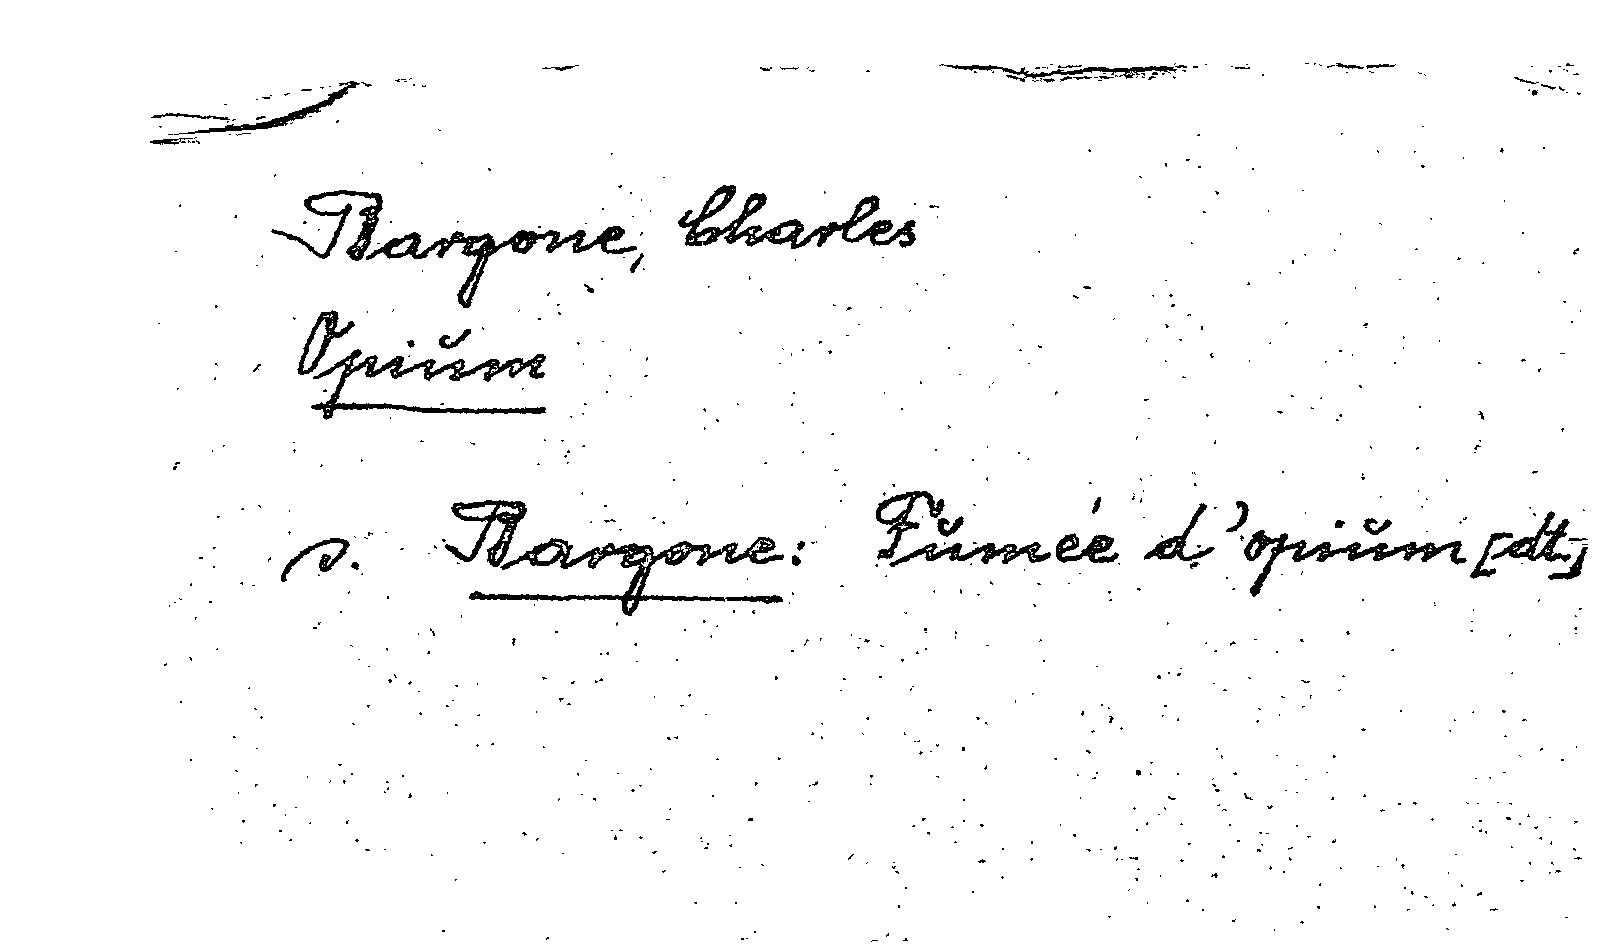 Bargone, Charles
Opium
s. Bargone: Fumée d'opium [dt.]